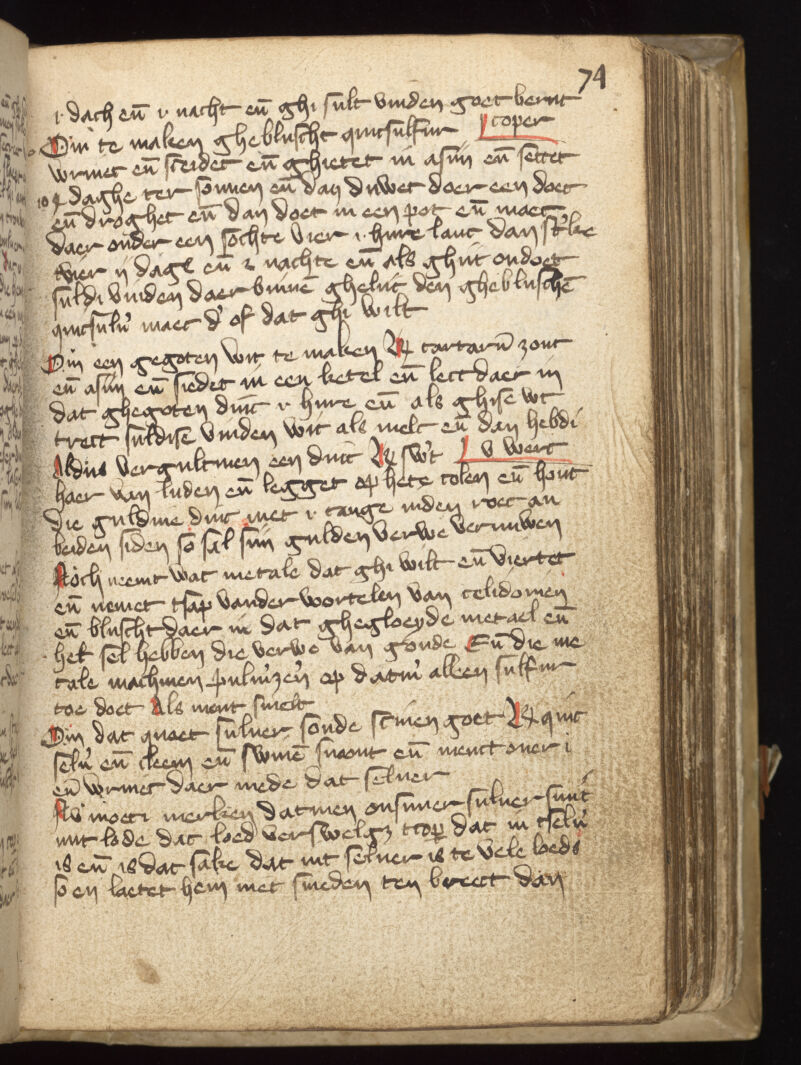 74
1 dach en̄ 1 nacht en̄ ghi sult vinden goet bernt
Om te maken gheblusscht quicsulfur coper
wrivet en̄ sceidet en̄ ghietet in asijn en̄ settet
daghe ter sonnen en̄ dan duwet doer een doec
en̄ droghet en̄ dan doet in een pot en̄ maect
daer onder een sochte vier 1 hure lanc dan st'ke
vier ij dagē en̄ 2 nachte en̄ als ghiit ondoet
suldi vinden daer binnē ghelijc den gheblusschē
quicsulu' maect d' of dat ghi wilt
Om een gegoten wit te maken ℞ tartarū zout
en̄ asijn en̄ siedet in een ketel en̄ lect daer in
dat ghegoten dinc 1 hure en̄ als ghise wt
trect suldise vinden wit als melc en̄ dan hebdi
Aldus vergultmen een dinc ℞ sw't u werc
haer van luden en̄ legget op hete colen en̄ hout
die guldine dinc met 1 tange inden roec an
beiden siden so sal sijn gulden verwe vernuwen
Noch neemt wat metale dat ghi wilt en̄ viertet
en̄ nemet tsap vander wortelen van celidonien
en̄ bluscht daer in dat ghegloeyde metael en̄
het sel hebben die verwe van goude En̄ die me
tale machmen pulu'izer̄ op datm' alleen sulfur
toe doet Als ment smelt
Om dat quaet suluer soude scinen goet ℞ quic
selu' en̄ cleem en̄ swinē smout en̄ menct ouer i
en̄ wrivet daer mede dat seluer
Nv moeti merken datmen onsuuer suluer suu't
mit lode dat loed verswelgz tcop' dat in tselu'
is en̄ is dat sake dat int seluer is te vele loeds
so en laetet hem niet smeden ten breect dan